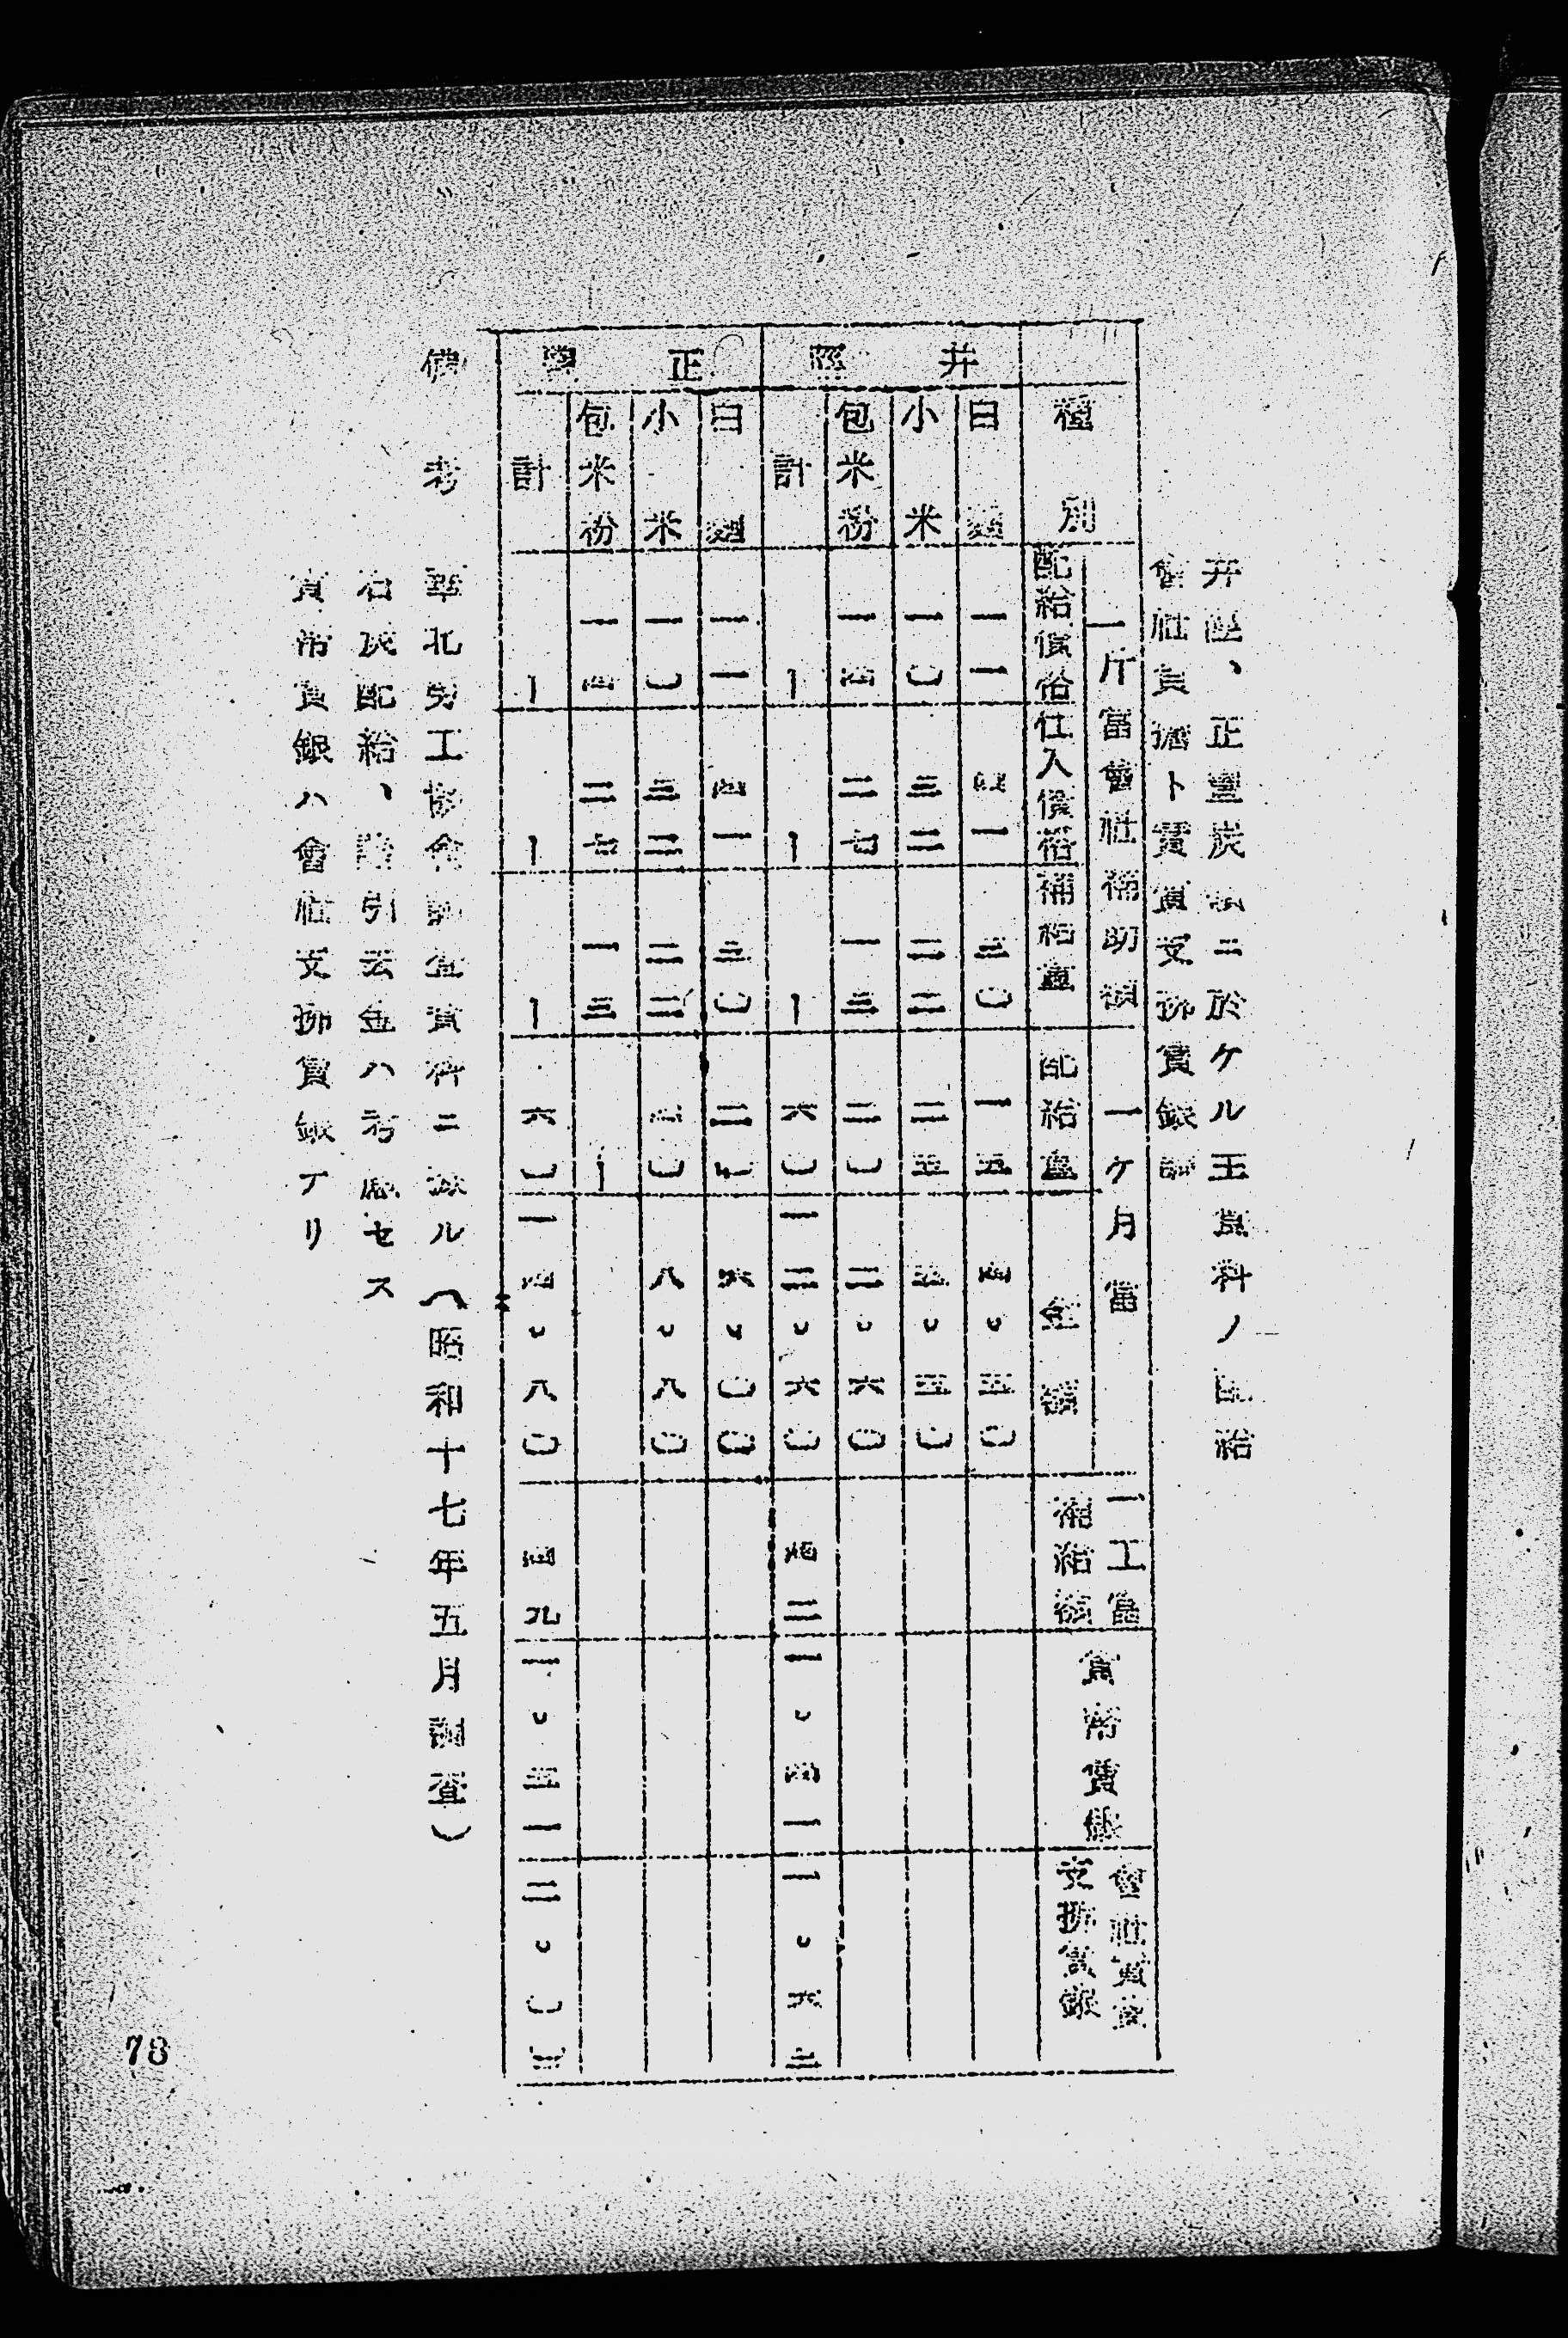 井陘、正豊炭礦ニ於ケル主食料ノ配給
會社負擔ト實質支拂賃銀調
種別
一斤當會社補助額
配給價格
仕入價格
補給量
一ケ月當
配給量
金額
一工當
補給額
實際賃銀
會社實質
支拂賃銀
井陘
白麵 一一 四一 三〇 一五 四。五〇
小米 一〇 三二 二二 二五 五。五〇
包米粉 一四 二七 一三 二〇 二。六〇
計 ー ー ー 六〇 一二。六〇 四二 一。四一 一。六三
正豊
白麵 一一 四一 三〇 二〇 六。〇〇
小米 一〇 三二 二二 四〇 八。八〇
包米粉 一四 二七 一三 ー
計 ー ー ー 六〇 一四。八〇 四九 一。五一 二。〇〇
備考
華北勞工協會調査資料ニ據ル(昭和十七年五月調査)
石炭配給、歩引云金ハ考慮セス
實際賃銀ハ會社支拂賃銀ナリ
78